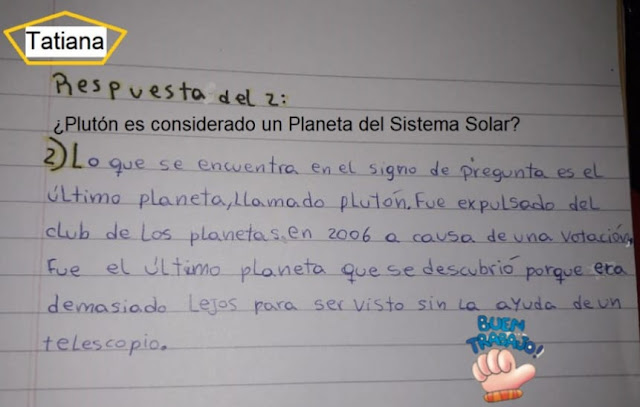 Tatiana
Respuesta del 2:
¿Plutón es considerado un Planeta del Sistema Solar?
2) Lo que se encuentra en el signo de pregunta es el
último planeta, llamado plutón. Fue expulsado del
club de los planetas, en 2006 a causa de una votación,
Fue el último planeta que se descubrió porque era
demasiado lejos para ser visto sin la ayuda de un
telescopio.
BUEN
TRABAJO!